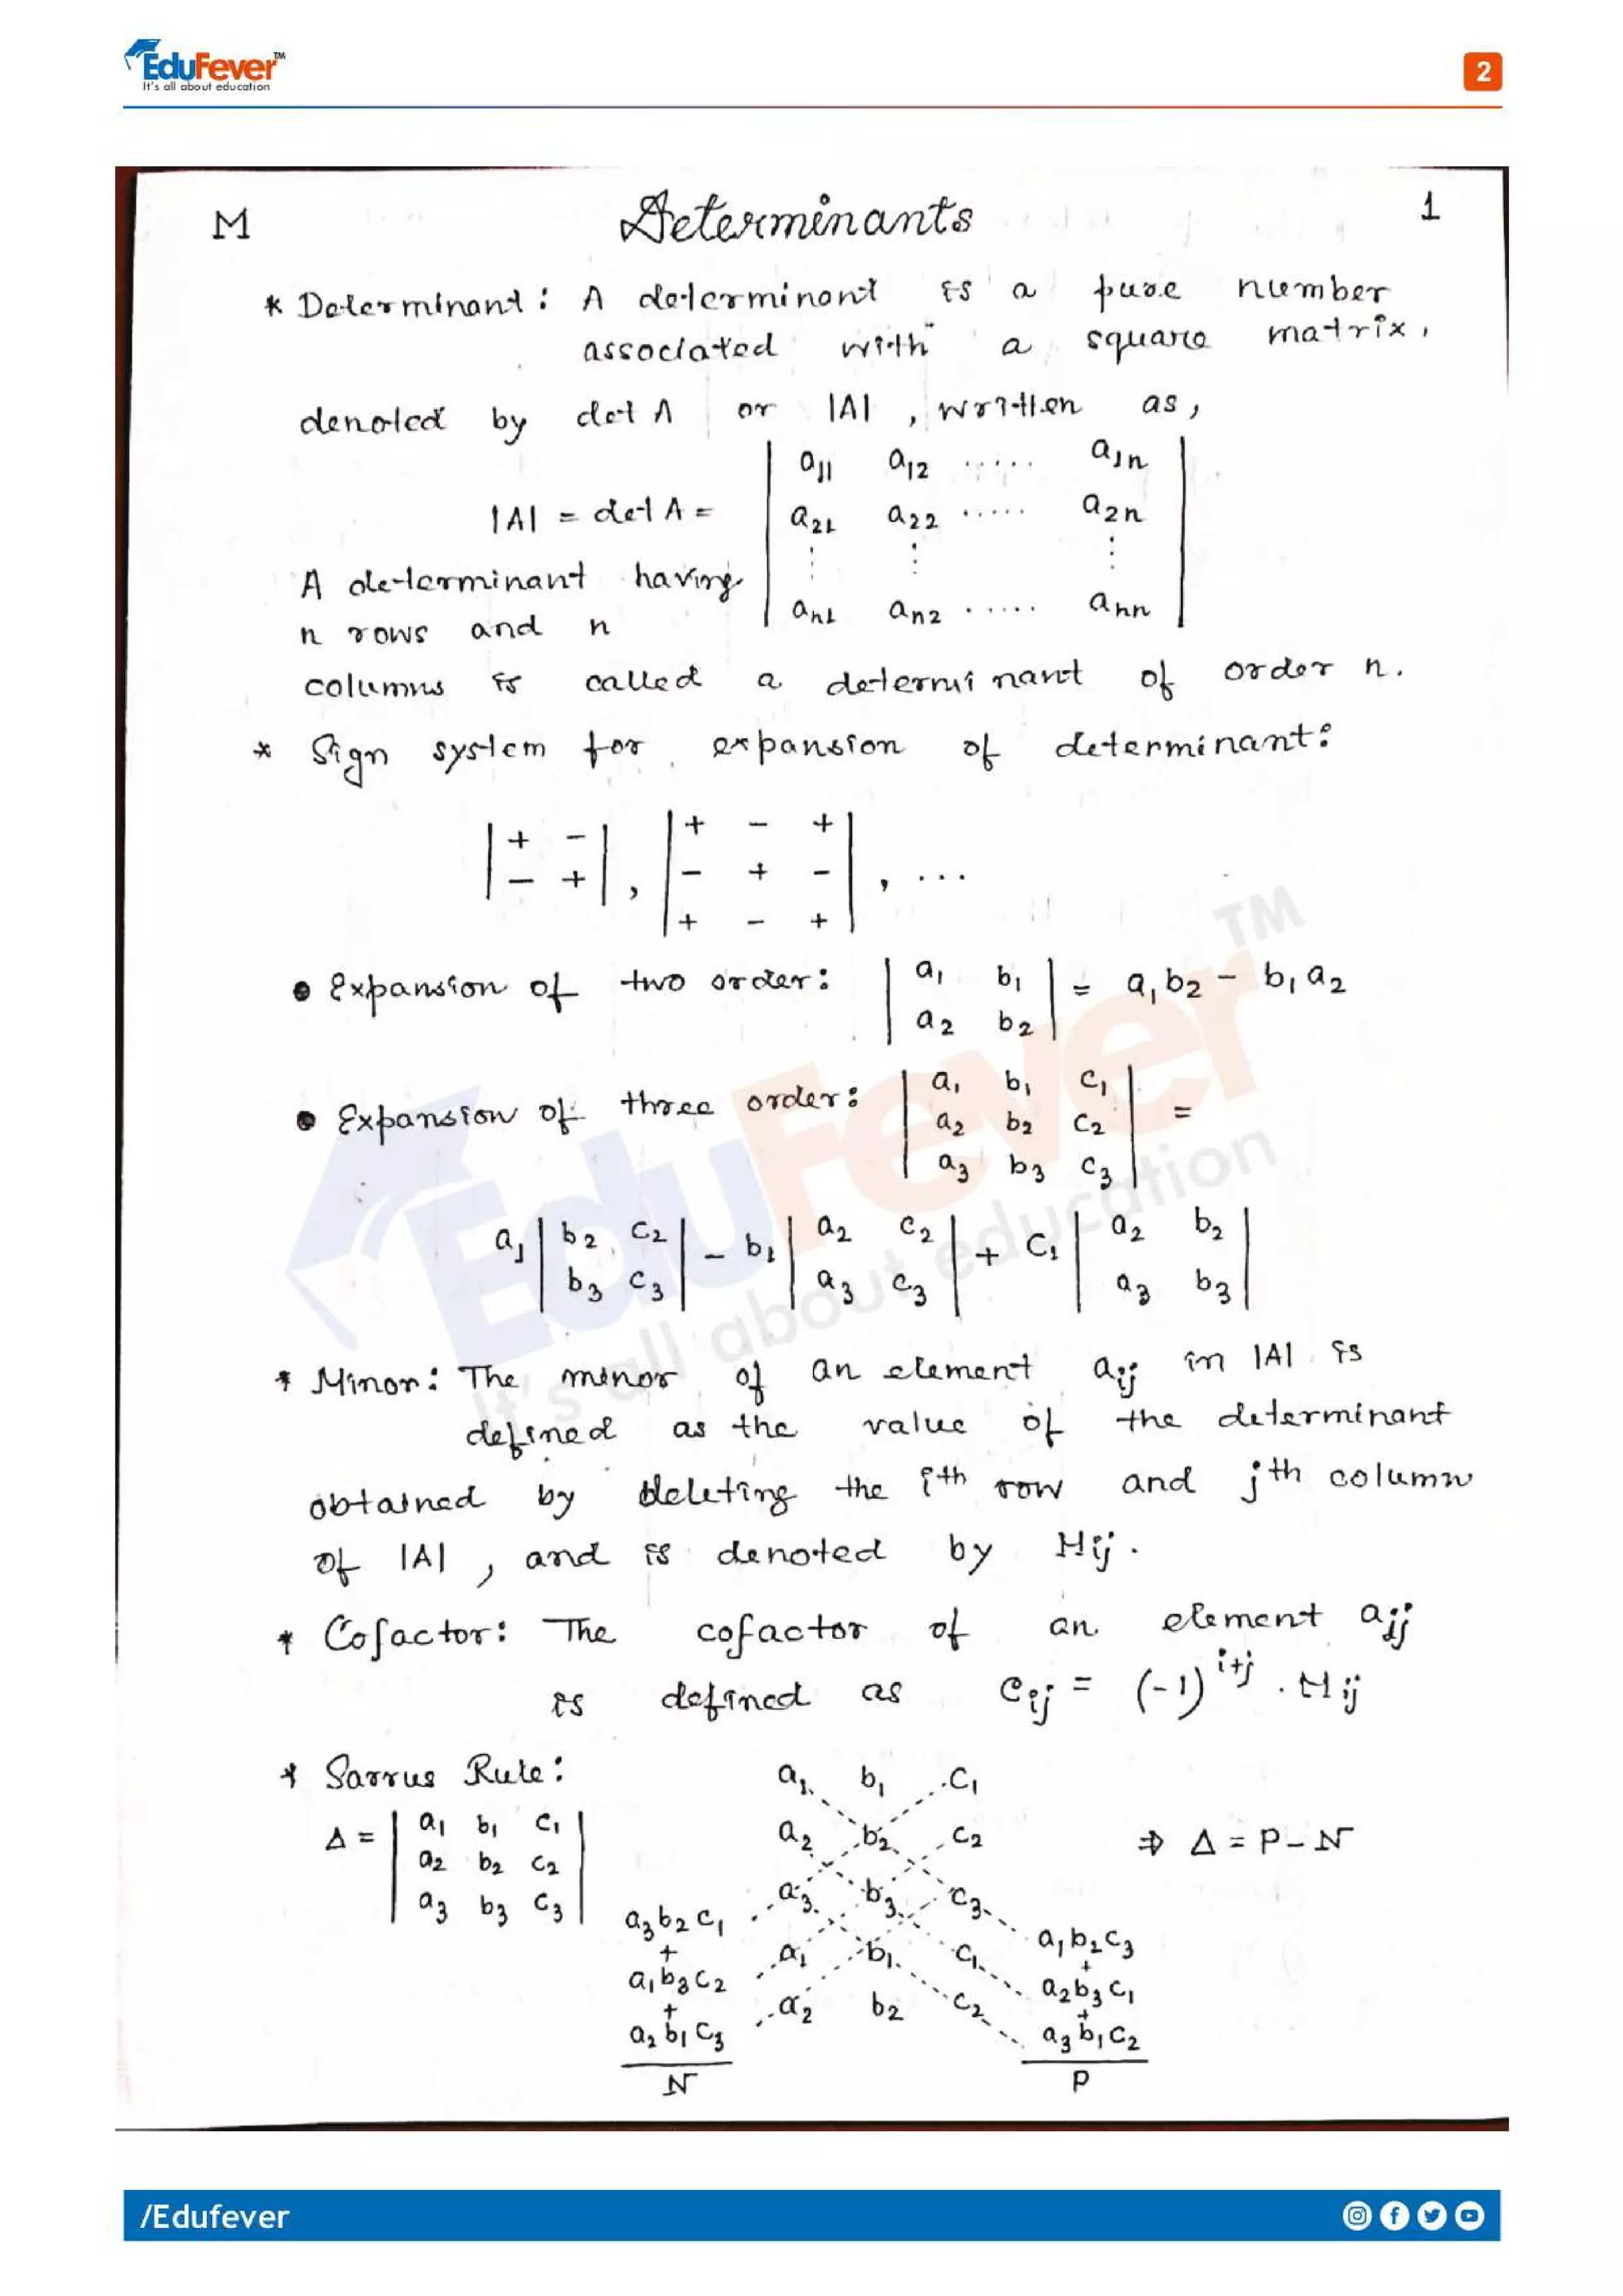 EduFever™
It's all about education
2
M
Determinants
1
* Determinant : A determinant is a pure number
associated with a square matrix,
denoted by det A or |A| , written as,
|A| = det A = | a11 a12 ..... a1n |
| a21 a22 ..... a2n |
| ⋮ ⋮ ⋮ |
| an1 an2 ..... ann |
A determinant having
n rows and n
columns is called a determinant of order n.
* Sign system for expansion of determinant :
| + - | , | + - + | , ...
| - + | | - + - |
| + - + |
● Expansion of two order : | a1 b1 | = a1b2 - b1a2
| a2 b2 |
● Expansion of three order : | a1 b1 c1 | =
| a2 b2 c2 |
| a3 b3 c3 |
a1 | b2 c2 | - b1 | a2 c2 | + c1 | a2 b2 |
| b3 c3 | | a3 c3 | | a3 b3 |
* Minor : The minor of an element aij in |A| is
defined as the value of the determinant
obtained by deleting the ith row and jth column
of |A| , and is denoted by Mij .
* Cofactor : The cofactor of an element aij
is defined as Cij = (-1)^i+j . Mij
* Sarrus Rule :
Δ = | a1 b1 c1 |
| a2 b2 c2 |
| a3 b3 c3 |
a1 b1 c1
a2 b2 c2
a3 b3 c3
a1 b1 c1
a2 b2 c2
a3b2c1
+
a1b3c2
+
a2b1c3
N
a1b2c3
+
a2b3c1
+
a3b1c2
P
⇒ Δ = P - N
EduFever™
It's all about education
/Edufever